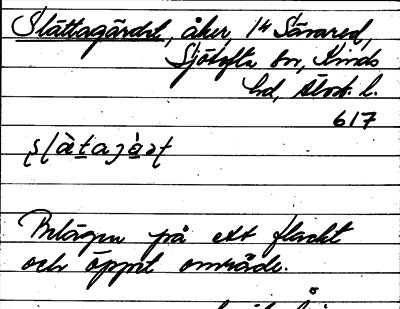 Slättagärdet, åker, 1/4 Sävared,
Sjötofta sn, Kinds
hd, Älvsb. l.
617
Belägen på ett flackt
och öppet område.